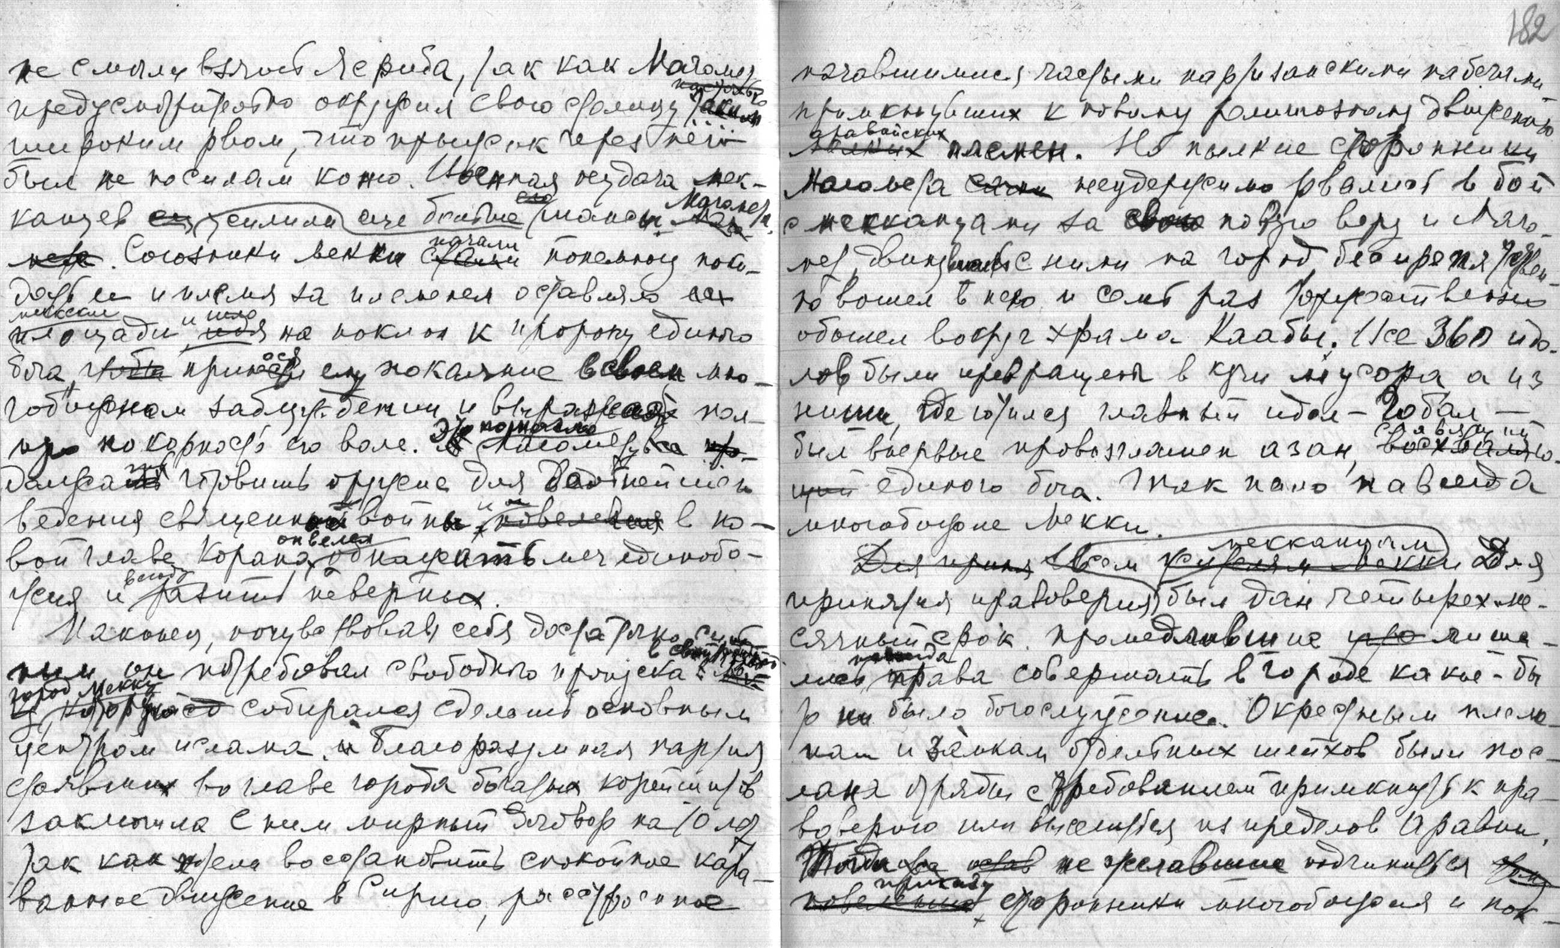 не смогли взять Ясриба, так как Магомет
предусмотрительно окружил свою столицу таким
широким рвом, что прыжок через него
был не по силам коню. Военная неудача мек-
канцев усилила еще больше шансы Магомета.
Союзники Мекки начали понемногу поки-
дать ее и племя за племенем оставляло
мекские
площади и шло на поклон к пророку единого
бога, принося ему покаяние в своем мно-
гобожном заблуждении и выражая пол-
ную покорность его воле. Это помогло Магомету
должать готовить оружие для дальнейшего
ведения священной войны и в но-
вой главе Корана он велел обнажать меч единобо-
жия и всюду разить неверных.
Наконец, почувствовав себя достаточно силь-
ным он потребовал свободного пропуска в священный
город Мекку, который собирался сделать основным
центром ислама и благоразумная партия
стоявших во главе города богатых корейшитов
заключила с ним мирный договор на 10 лет
так как хотела восстановить спокойное кара-
ванное движение в Сирию, расстроенное
182
начавшимися частыми партизанскими набегами
примкнувших к новому религиозному движению
аравийских
мелких племен. Но пылкие сторонники
Магомета неудержимо рвались в бой
с мекканцами за свою новую веру и Маго-
мет, двинувшись с ними на город беспрепятствен-
но вошел в него и семь раз торжественно
обошел вокруг храма Каабы. Все 360 идо-
лов были превращены в кучи мусора а из
ниши, где ютился главный идол — Гобал —
был впервые провозглашен азан, славящий
единого бога. Так пало навсегда
многобожие Мекки.
Для приня Всем жителям Мекки мекканцам Для
принятия правоверия был дан четырехме-
сячный срок. Промедлившие лиша-
лись навсегда права совершать в городе какое-бы
то ни было богослужение. Окрестным племе-
нам и замкам отдельных шейхов были пос-
ланы отряды с требованием примкнуть к пра-
воверию или выселиться из пределов Аравии.
Тогда не желавшие подчиниться
повелению приказу сторонники многобожия и пок-